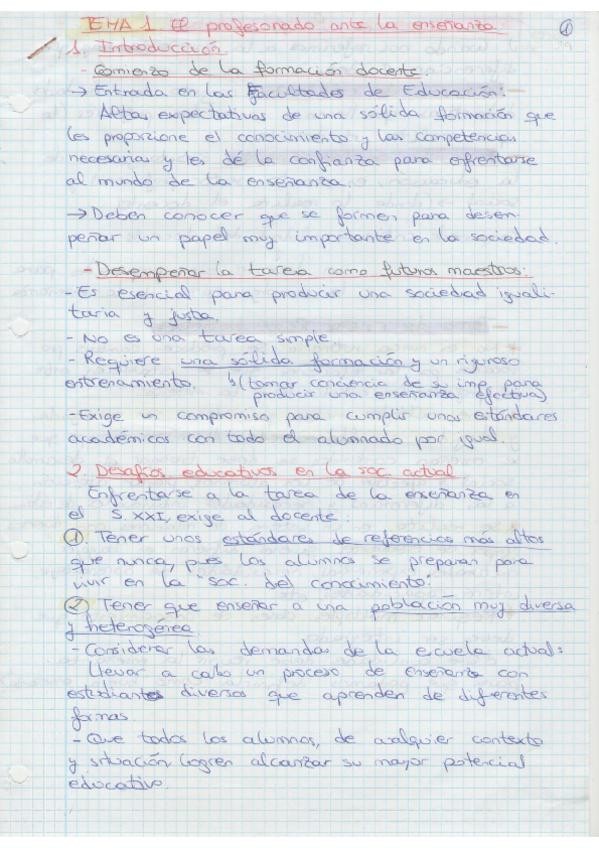 TEMA 1. El profesorado ante la enseñanza
1
1. Introducción
- Comienzo de la formación docente.
→ Entrada en las Facultades de Educación:
Altas expectativas de una sólida formación que
les proporcione el conocimiento y las competencias
necesarias y les dé la confianza para enfrentarse
al mundo de la enseñanza.
→ Deben conocer que se formen para desem-
peñar un papel muy importante en la sociedad.
- Desempeñar la tarea como futuros maestros:
- Es esencial para producir una sociedad iguali-
taria y justa.
- No es una tarea simple
- Requiere una sólida formación y un riguroso
entrenamiento. ↳ (tomar conciencia de su imp. para
producir una enseñanza efectiva)
- Exige un compromiso para cumplir unos estándares
académicos con todo el alumnado por igual.
2. Desafíos educativos en la soc. actual
Enfrentarse a la tarea de la enseñanza en
el S. XXI, exige al docente:
1 Tener unos estándares de referencias más altos
que nunca, pues los alumnos se preparan para
vivir en la "soc. del conocimiento".
2 Tener que enseñar a una población muy diversa
y heterogénea
- Considerar las demandas de la escuela actual:
Llevar a cabo un proceso de enseñanza con
estudiantes diversos que aprenden de diferentes
formas
- Que todos los alumnos, de cualquier contexto
y situación logren alcanzar su mayor potencial
educativo.